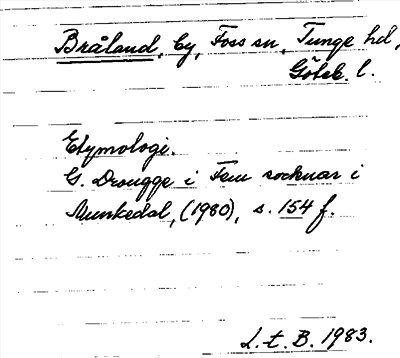 Bråland, by, Foss sn, Tunge hd,
Göteb. l.
Etymologi.
G. Drougge i Fem socknar i
Munkedal, (1980), s. 154 f.
L.t.B. 1983.